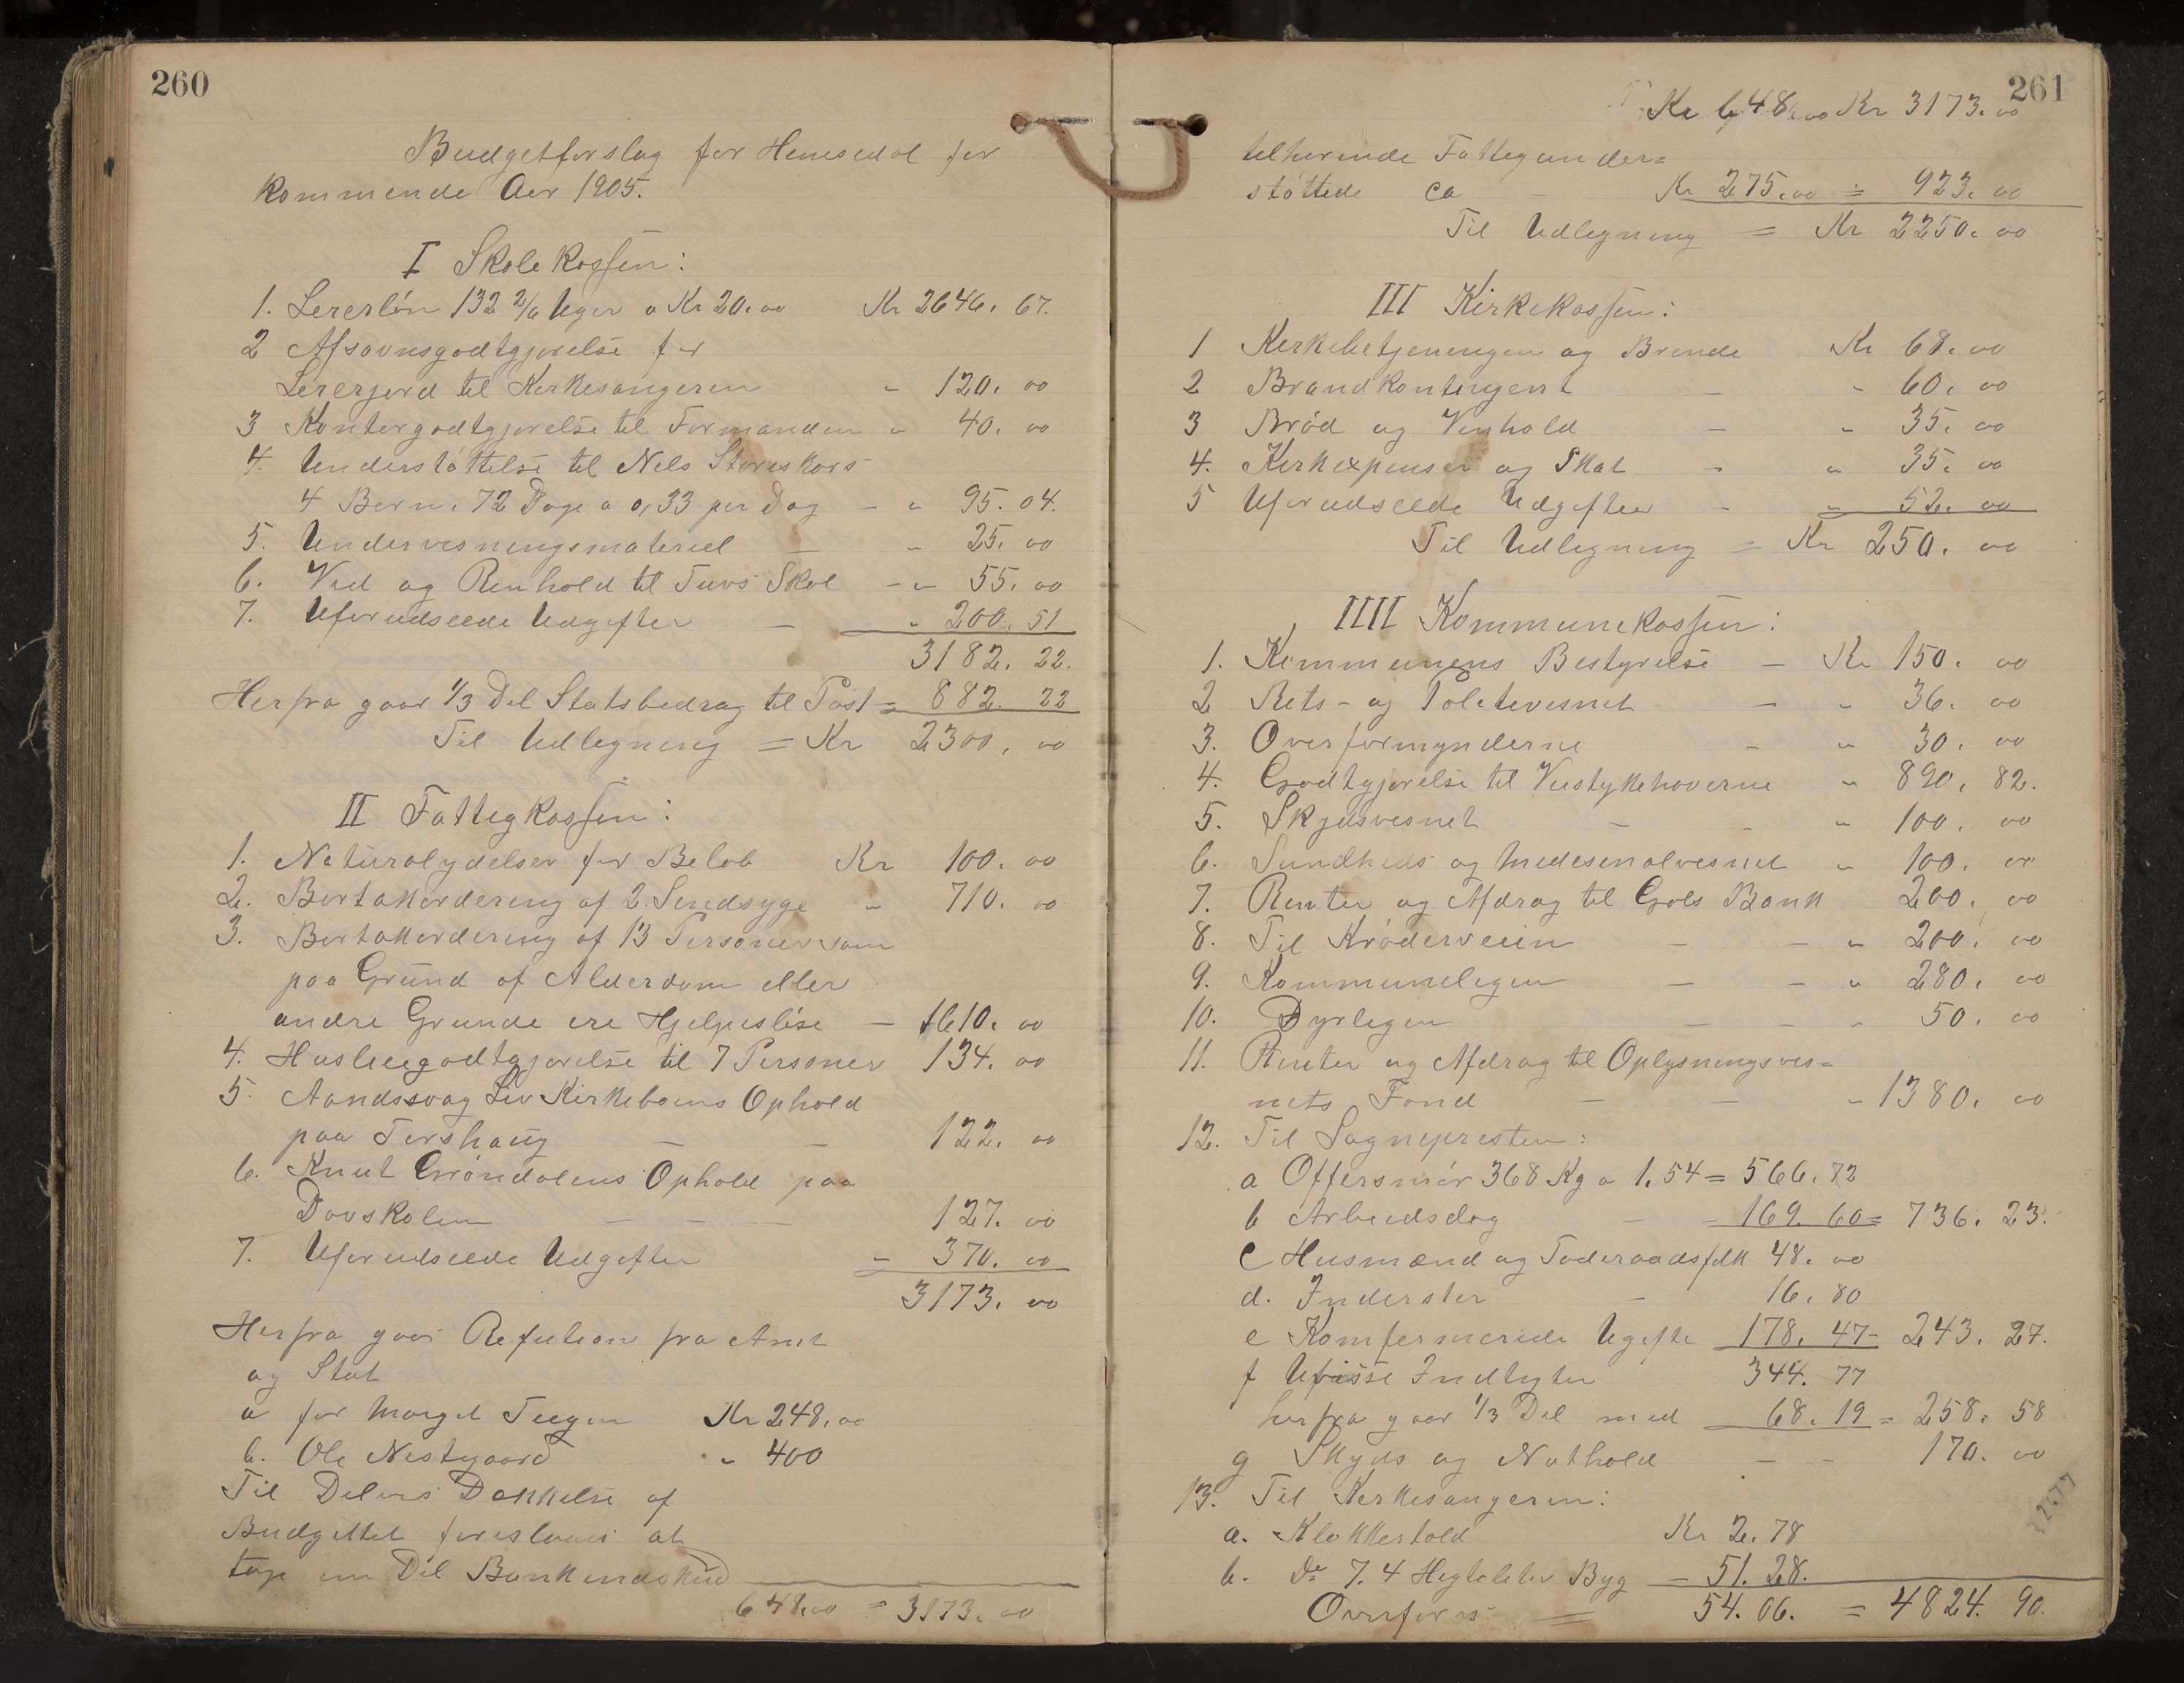 260
Budgetforslag for Hemsedal for
kommende Aar 1905.
I Skolekassen:
1. Lererløn 132 2/6 Uger a Kr 20.00 Kr 2646. 67.
2 Afsavnsgodtgjørelse for
Lererjord til Kirkesangeren " 120. 00
3 Kontorgodtgjørelse til Formanden " 40. 00
4. Understøttelse til Nels Storeskars
4 Børn. 72 Dage a 0,33 per Dag - " 95. 04.
5. Undervisningsmateriel - " 25. 00
6. Ved og Renhold til Tuvs Skol - " 55. 00
7. Uforudseede Udgifter - " 200. 51
3182. 22.
Herfra gaar 1/3 Del Statsbedrag til Post 1 = 882. 22
Til Udlegning = Kr 2300. 00
II Fattigkassen:
1. Naturalydelser for Beløb Kr 100. 00
2. Bortakordering af 2 Sindsyge " 710. 00
3. Bortakordering af 13 Personer som
paa Grund af Alderdom eller
andre Grunde ere Hjelpeløse - 1610. 00
4. Husleiegodtgjørelse til 7 Personer 134. 00
5. Aandssvag Liv Kirkeboens Ophold
paa Torshaug - - 122. 00
6. Knut Grøndalens Ophold paa
Døvskolen - - - 127. 00
7. Uforudseede Udgifter " 370. 00
3173. 00
Herfra gaar Refution fra Amt
og Stat
a for Margit Kr 248.00
b. Ole Nestegaard " 400
Til Delvis Dekkelse af
Budgettet foreslaaes at
tage en Del
648.00 = 3173. 00
261
Kr 648.00 Kr 3173. 00
tilhørende Fattigunder=
støttede ca - Kr 275.00 = 923. 00
Til Udlegning = Kr 2250. 00
III Kirkekassen:
1 Kirkebetjeningen og Brende Kr 68. 00
2 Brandkontingent - " 60. 00
3 Brød og Vinhold - " 35. 00
4. Kirkexpenser og Skat - " 35. 00
5 Uforudseede Udgifter - " 52. 00
Til Udlegning = Kr 250. 00
IIII Kommunekassen:
1. Kommunens Bestyrelse - Kr 150. 00
2 Rets- og Politivesnet - " 36. 00
3. Overformynderne - " 30. 00
4. Godtgjørelse til Veistykkehaverne " 890. 82.
5. Skjusvesnet - - " 100. 00
6. Sundheds og Medesinalvesnet " 100. 00
7. Renter og Afdrag til Gols Bank 200. 00
8. Til Krøderveien - - " 200. 00
9. Kommunelegen - - " 280. 00
10. Dyrlegen - - " 50. 00
11. Renter og Afdrag til Oplysningsves=
nets Fond - - " 1380. 00
12. Til Sognepresten:
a Offersmør 368 Kg a 1.54 = 566. 72
b Arbeidsdag - = 169. 60 = 736. 23.
c Husmænd og Føderaadsfolk 48. 00
d. Inderster - 16. 80
e Komfermerede Ugifte 178. 47 - 243. 27.
f Uvisse Indtegter 344. 77
herfra gaar 1/3 Del med 68. 19 = 258. 58
g Skyds og Nathold - - 170. 00
13. Til Kirkesangeren:
a. Klokkertold Kr 2. 78
b. Do 7.4 Hegtoleter Byg - 51. 28.
Overføres = 54. 06. = 4824. 90.